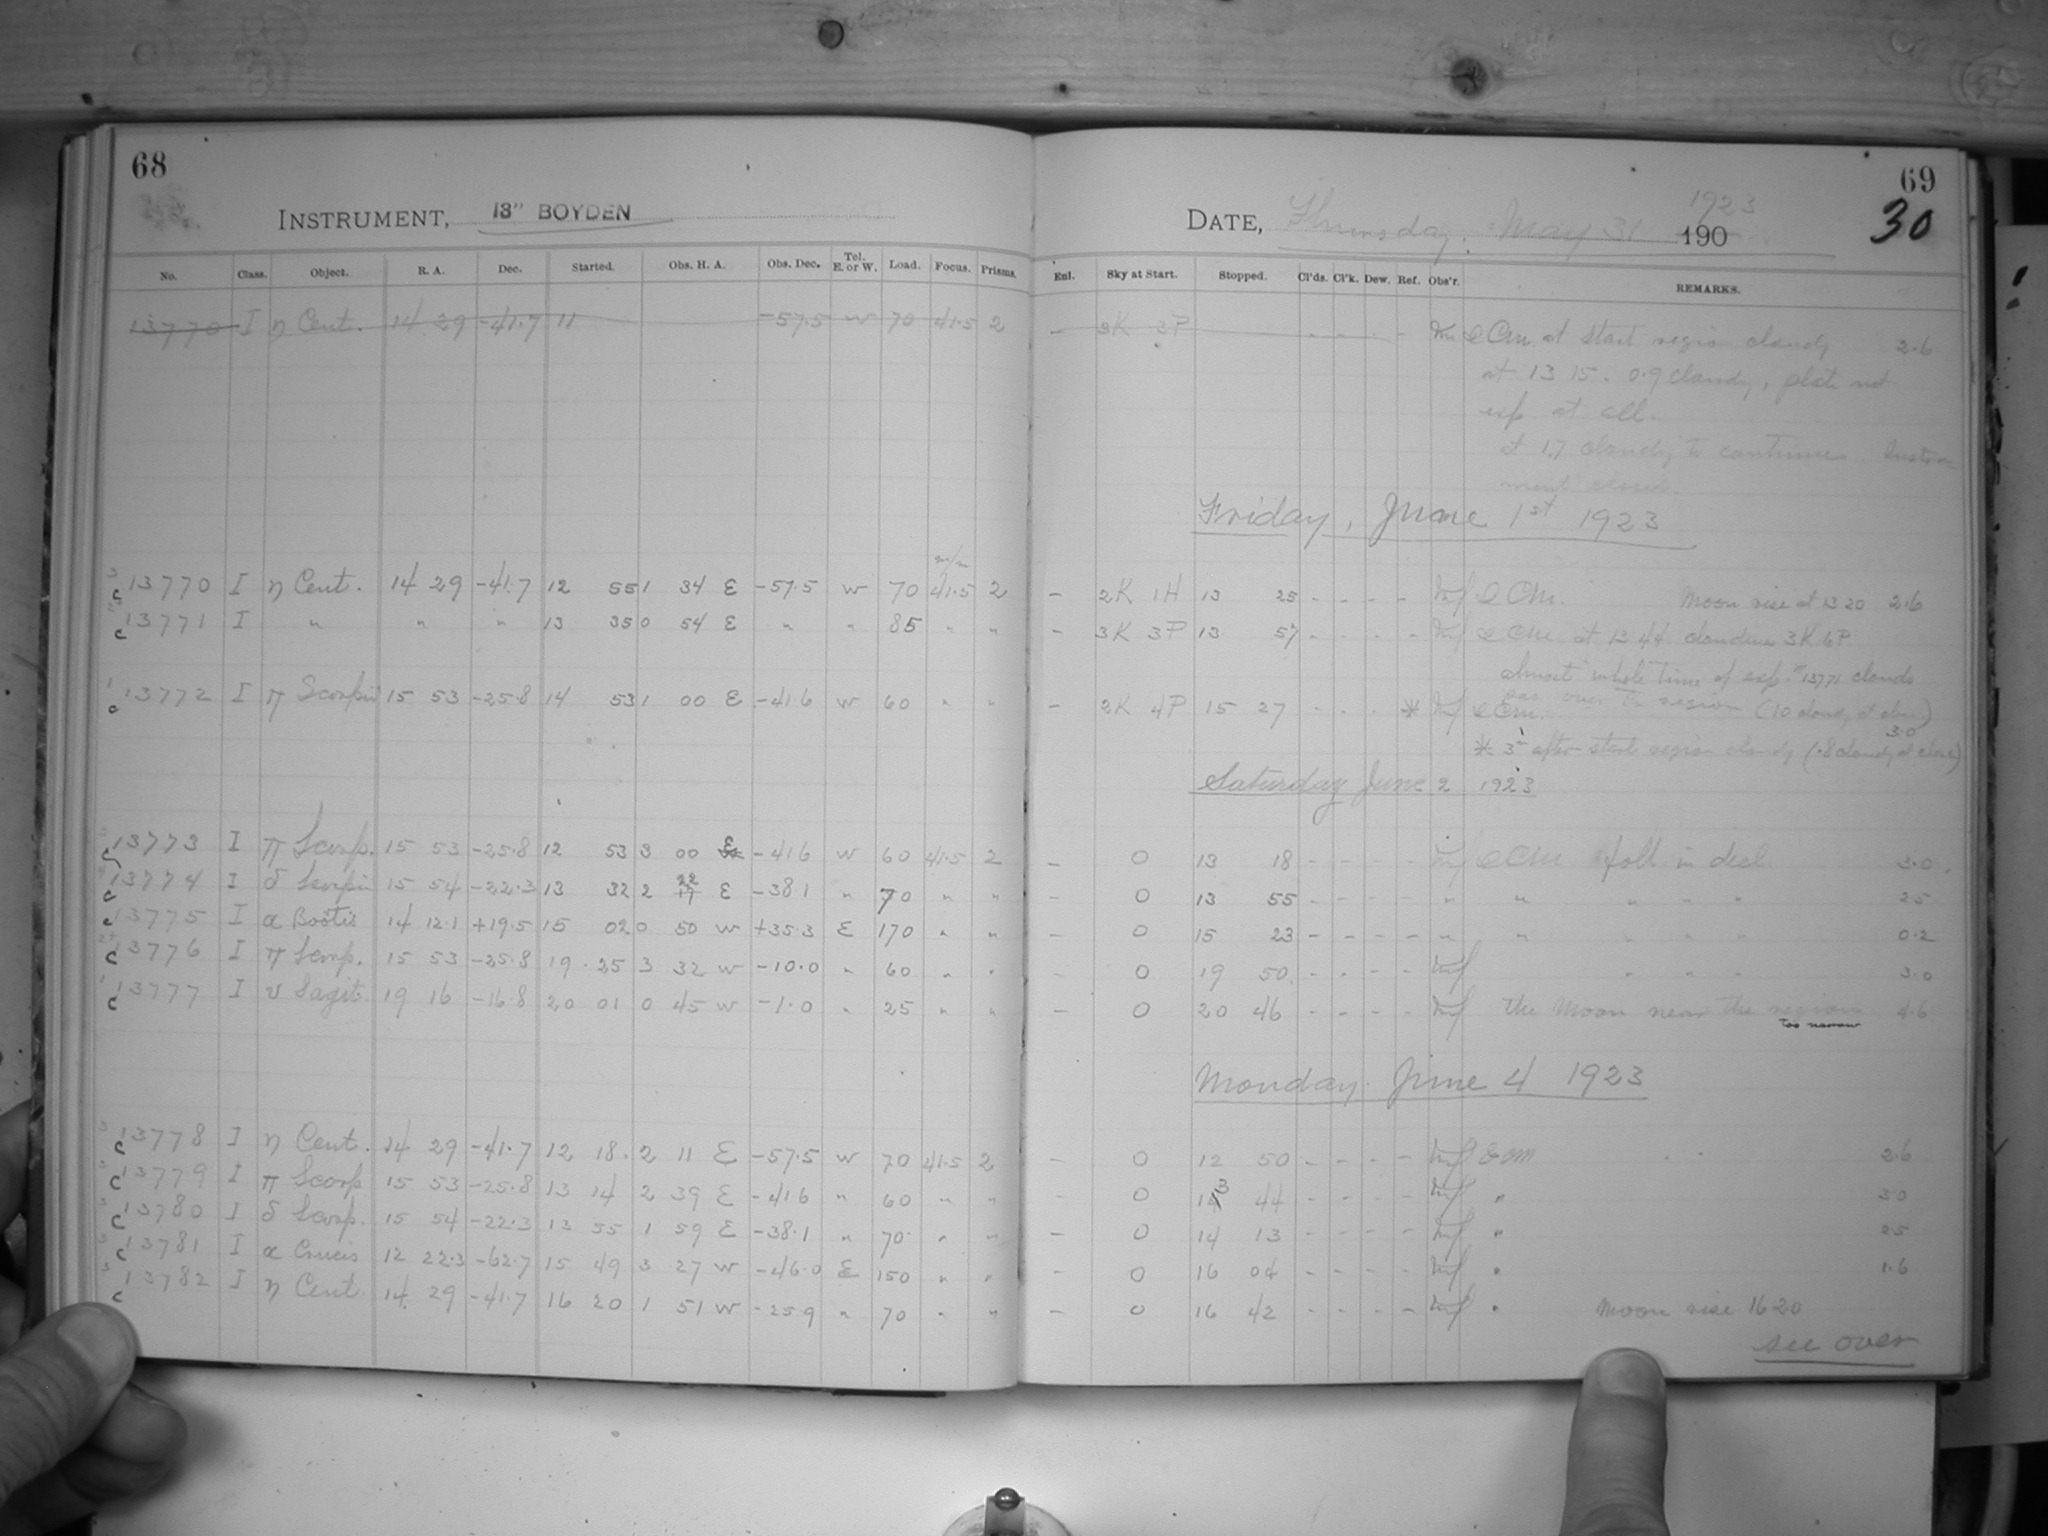 68
INSTRUMENT, 13" BOYDEN
No. Class. Object. R. A. Dec. Started. Obs. H. A. Obs. Dec. Tel. E. or W. Load. Focus. Prisms.
13770 I η Cent. 14 29 -41.7 11 -57.5 W 70 41.5 2
m/m
13770 I η Cent. 14 29 -41.7 12 55 1 34 E -57.5 W 70 41.5 2
13771 I " " " 13 35 0 54 E " " 85 " "
13772 I π Scorpii 15 53 -25.8 14 53 1 00 E -41.6 W 60 " "
13773 I π Scorp. 15 53 -25.8 12 53 3 00 E -41.6 W 60 41.5 2
13774 I δ Scorpii 15 54 -22.3 13 32 2 22 E -38.1 " 70 " "
13775 I α Bootis 14 12.1 +19.5 15 02 0 50 W +35.3 E 170 " "
13776 I π Scorp. 15 53 -25.8 19 25 3 32 W -10.0 " 60 " "
13777 I υ Sagit. 19 16 -16.8 20 01 0 45 W -1.0 " 25 " "
13778 I η Cent. 14 29 -41.7 12 18 2 11 E -57.5 W 70 41.5 2
13779 I π Scorp 15 53 -25.8 13 14 2 39 E -41.6 " 60 " "
13780 I δ Scorp. 15 54 -22.3 13 55 1 59 E -38.1 " 70 " "
13781 I α Crucis 12 22.3 -62.7 15 49 3 27 W -46.0 E 150 " "
13782 I η Cent. 14 29 -41.7 16 20 1 51 W -25.9 " 70 " "
69
1923
30
DATE, Thursday, May 31 190
Enl. Sky at Start. Stopped. Cl'ds. Cl'k. Dew. Ref. Obs'r. REMARKS.
- 3K 3P - - - - at start region cloudy 2.6
at 13 15. 0.9 cloudy, plate not
exp. at all.
at 17 cloudy to continue. Instru-
ment closed.
Friday, June 1st 1923
- 2K 1H 13 25 - - - - Moon rise at 13 20 2.6
- 3K 3P 13 57 - - - - at 13 44 cloudiness 3K 6P
almost whole time of exp. 13771 clouds
pass over the region (10 cloudy at close)
- 2K 4P 15 27 - - - * 3.0
* 3m after start region cloudy (.8 cloudy at close)
Saturday June 2 1923
- 0 13 18 - - - - foll in decl. 3.0
- 0 13 55 - - - - " " " " " 2.5
- 0 15 23 - - - - " " " " " 0.2
- 0 19 50 - - - - " " " 3.0
- 0 20 46 - - - - the Moon near the region 4.6
too narrow
Monday. June 4 1923
- 0 12 50 - - - - 2.6
- 0 13 44 - - - - " 3.0
- 0 14 13 - - - - " 2.5
- 0 16 04 - - - - " 1.6
- 0 16 42 - - - - " Moon rise 16 20
see over